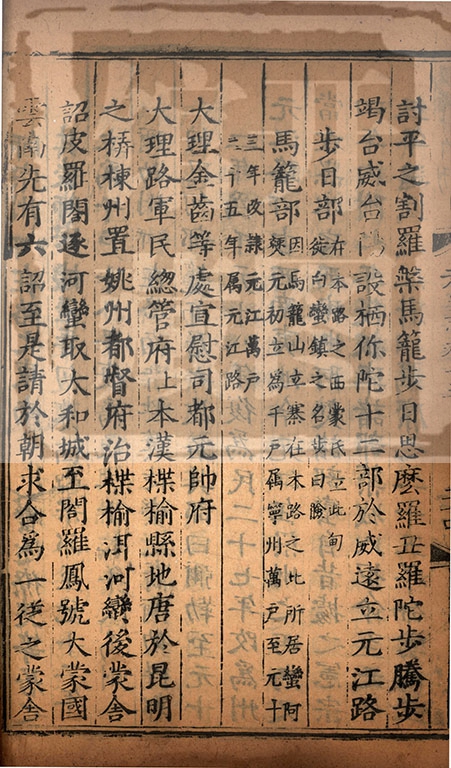 討平之割羅槃馬籠步日思麼羅丑羅陀步騰步
竭台威台陽設栖你陀十二部於威遠立元江路
步日部
在本路之西蒙氏立此甸
徙白蠻鎮之名步日瞼
馬籠部
因馬籠山立寨在本路之北所居蠻阿
僰元初立爲千戶屬寧州萬戶至元十
三年改隸元江萬戶
二十五年属元江路
大理金齒等處宣慰司都元帥府
大理路軍民緫管府上本漢楪榆縣地唐於昆明
之梇棟州置姚州都督府治楪榆洱河蠻後蒙舎
詔皮羅閣逐河蠻取太和城至閣羅鳳號大蒙國
雲南先有六詔至是請於朝求合爲一從之蒙舎